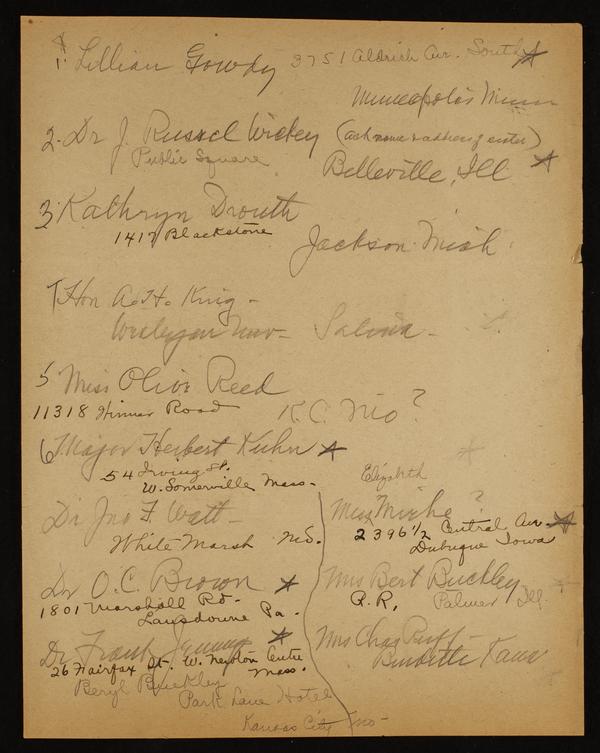 1. Lillian Gowdy 3751 Aldrich Av. South
Minneapolis Minn
2. Dr J. Russel Wickey (ask name & address of sister)
Public Square Belleville, Ill
3. Kathryn Drouth
1417 Blackstone Jackson Mich.
Hon A. H. King -
Wesleyan Univ - Salina -
5 Miss Olive Reed
11318 Winner Road K.C. Mo?
6 Major Herbert Kuhn
54 Irving St.
W. Somerville Mass.
Dr Jno F. Watt -
White Marsh Md.
Dr O. C. Brown
1801 Marshall Rd.
Lansdowne Pa.
Dr Frank
26 Fairfax St. W. Newton Centre
Mass.
Beryl Buckley
Park Lane Hotel
Kansas City Mo -
Elizabeth
Miss ?
2396 1/2 Central Av.
Dubuque Iowa
Mrs Bert Buckley
R.R. Palmer Ill.
Mrs Chas Ruff -
Burdette Kans